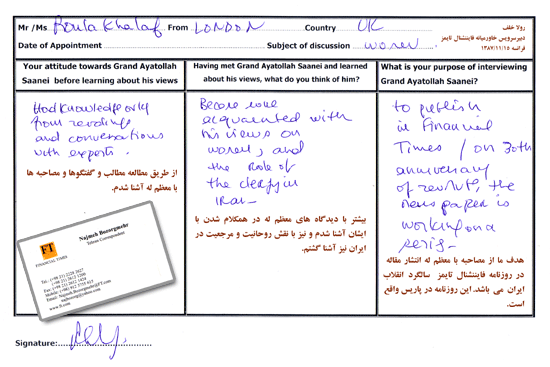 Mr /Ms Roula Khalaf From LONDON Country UK
Date of Appointment Subject of discussion women
رولا خلف
دبیرسرویس خاورمیانه فایننشال تایمز
۱۳۸۷/۱۱/۱۵ فرانسه
Your attitude towards Grand Ayatollah
Saanei before learning about his views
Had knowledge only
from readings
and conversations
with experts.
از طریق مطالعه مطالب و گفتگوها و مصاحبه ها
با معظم له آشنا شدم.
Having met Grand Ayatollah Saanei and learned
about his views, what do you think of him?
Became more
acquainted with
his views on
women, and
the role of
the clergy in
Iran -
بیشتر با دیدگاه های معظم له در همکلام شدن با
ایشان آشنا شدم و نیز با نقش روحانیت و مرجعیت در
ایران نیز آشنا گشتم.
What is your purpose of interviewing
Grand Ayatollah Saanei?
to publish
in Financial
Times / on 30th
anniversary
of revolut, the
newspaper is
working on a
series -
هدف ما از مصاحبه با معظم له انتشار مقاله
در روزنامه فایننشال تایمز سالگرد انقلاب
ایران می باشد. این روزنامه در پاریس واقع
است.
FT
FINANCIAL TIMES
Najmeh Bozorgmehr
Tehran Correspondent
www.ft.com
Signature: